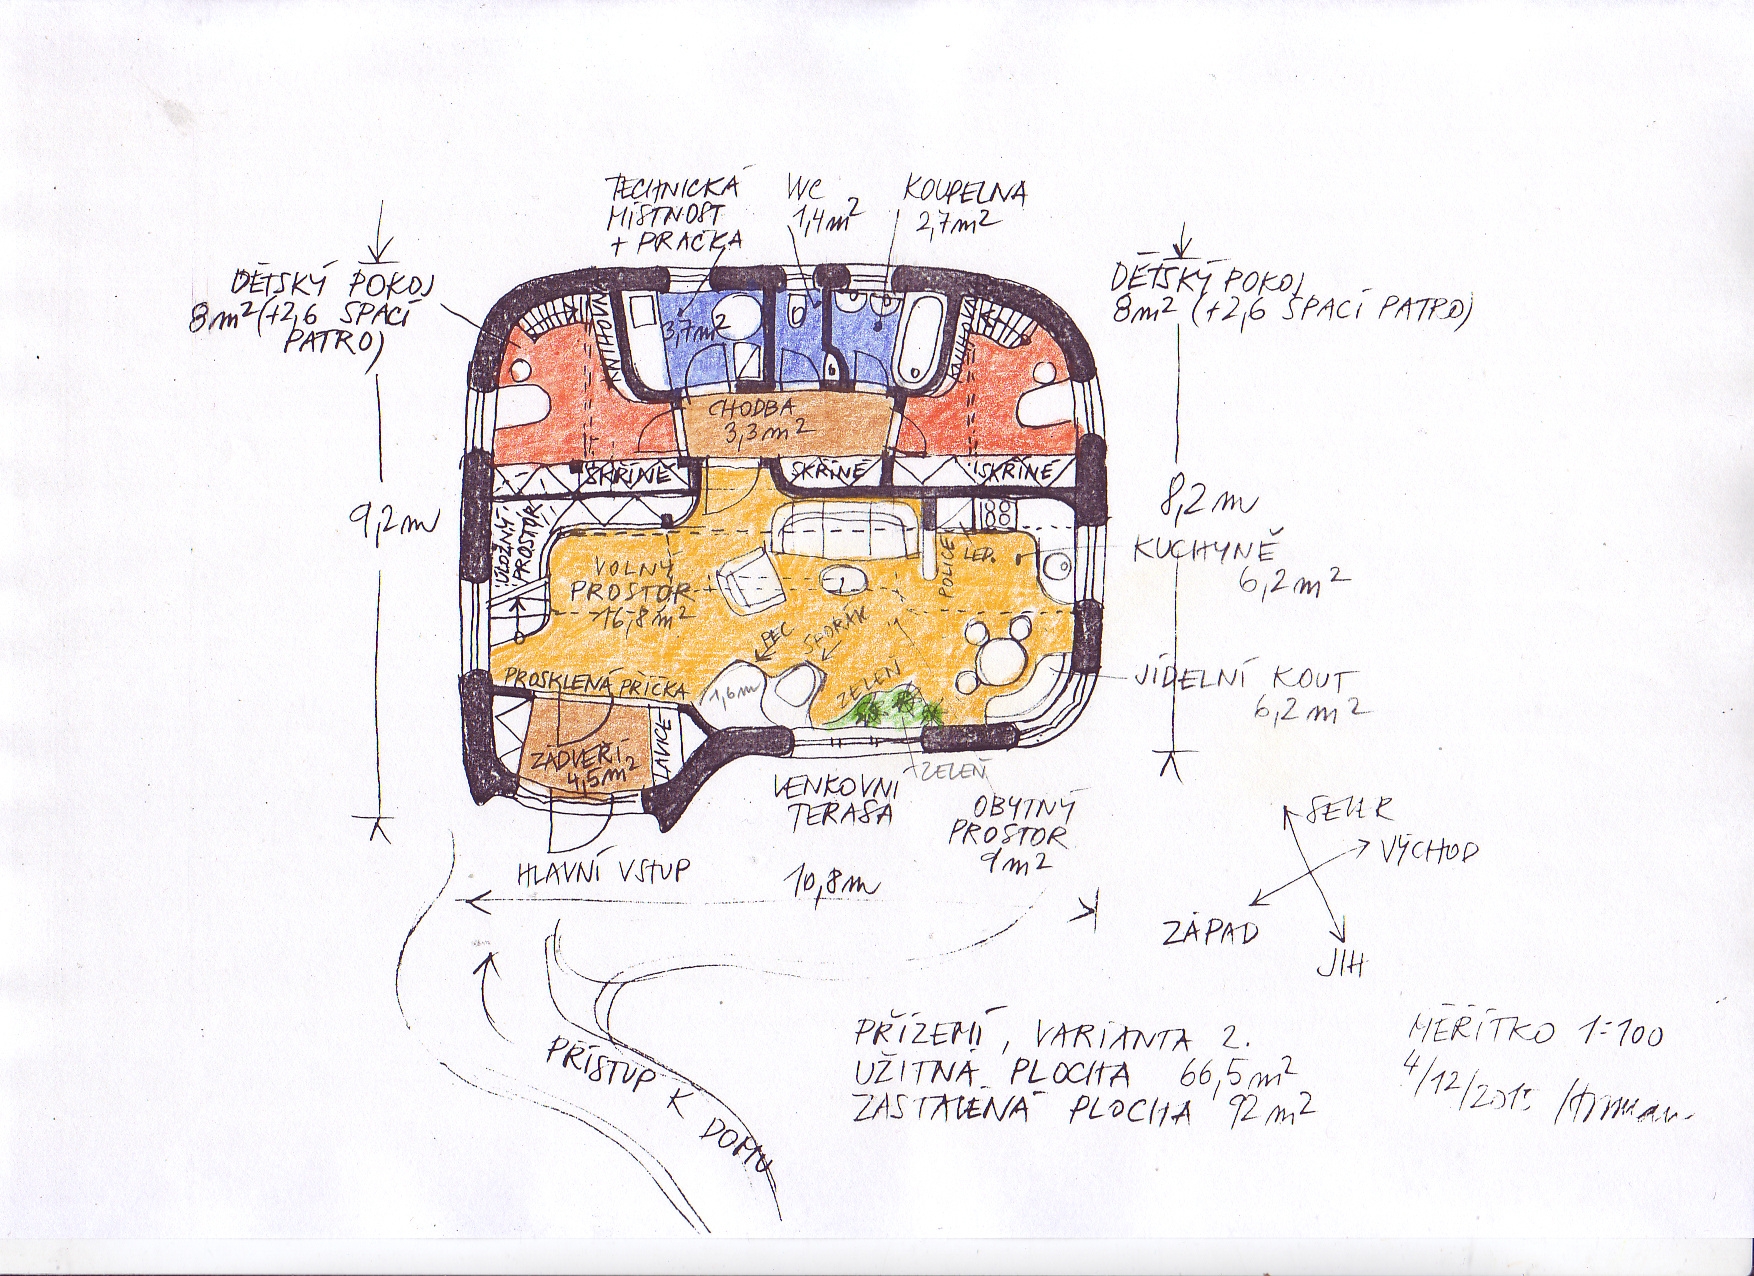 TECHNICKÁ
MÍSTNOST
+ PRAČKA
WC
1,4m²
KOUPELNA
2,7m²
DĚTSKÝ POKOJ
8m² (+2,6 SPACÍ
PATRO)
DĚTSKÝ POKOJ
8m² (+2,6 SPACÍ PATRO)
KNIHOVNA
3,7m²
KNIHOVNA
CHODBA
3,3m²
SKŘÍNĚ
SKŘÍNĚ
SKŘÍNĚ
9,2m
8,2m
ÚLOŽNÝ
PROSTOR
KUCHYNĚ
6,2m²
POLICE
LED.
VOLNÝ
PROSTOR
16,8m²
PEC
SPORÁK
1,6m
ZELEŇ
PROSKLENÁ PŘÍČKA
JÍDELNÍ KOUT
6,2m²
ZÁDVEŘÍ
4,5m²
LAVICE
ZELEŇ
VENKOVNÍ
TERASA
OBYTNÝ
PROSTOR
9m²
HLAVNÍ VSTUP
10,8m
SEVER
VÝCHOD
ZÁPAD
JIH
PŘÍSTUP K DOMU
PŘÍZEMÍ, VARIANTA 2.
UŽITNÁ PLOCHA 66,5m²
ZASTAVĚNÁ PLOCHA 92m²
MĚŘÍTKO 1:100
4/12/2013